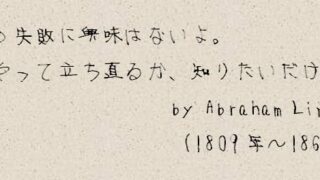 の失敗に興味はないよ。
やって立ち直るか、知りたいだけ
by Abraham Li
(1809年～186